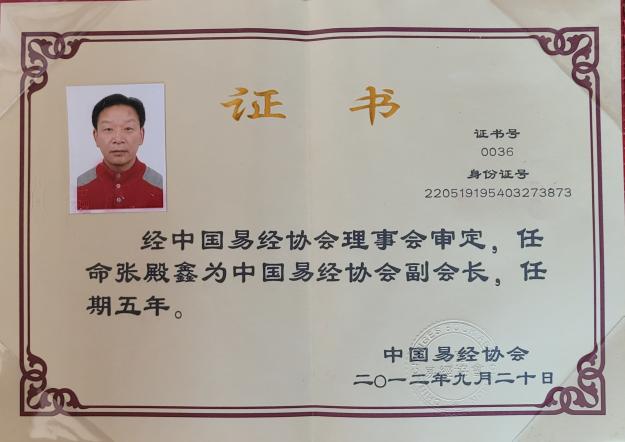 证书
证书号
0036
身份证号
220519195403273873
经中国易经协会理事会审定，任
命张殿鑫为中国易经协会副会长，任
期五年。
中国易经协会
二〇一二年九月二十日